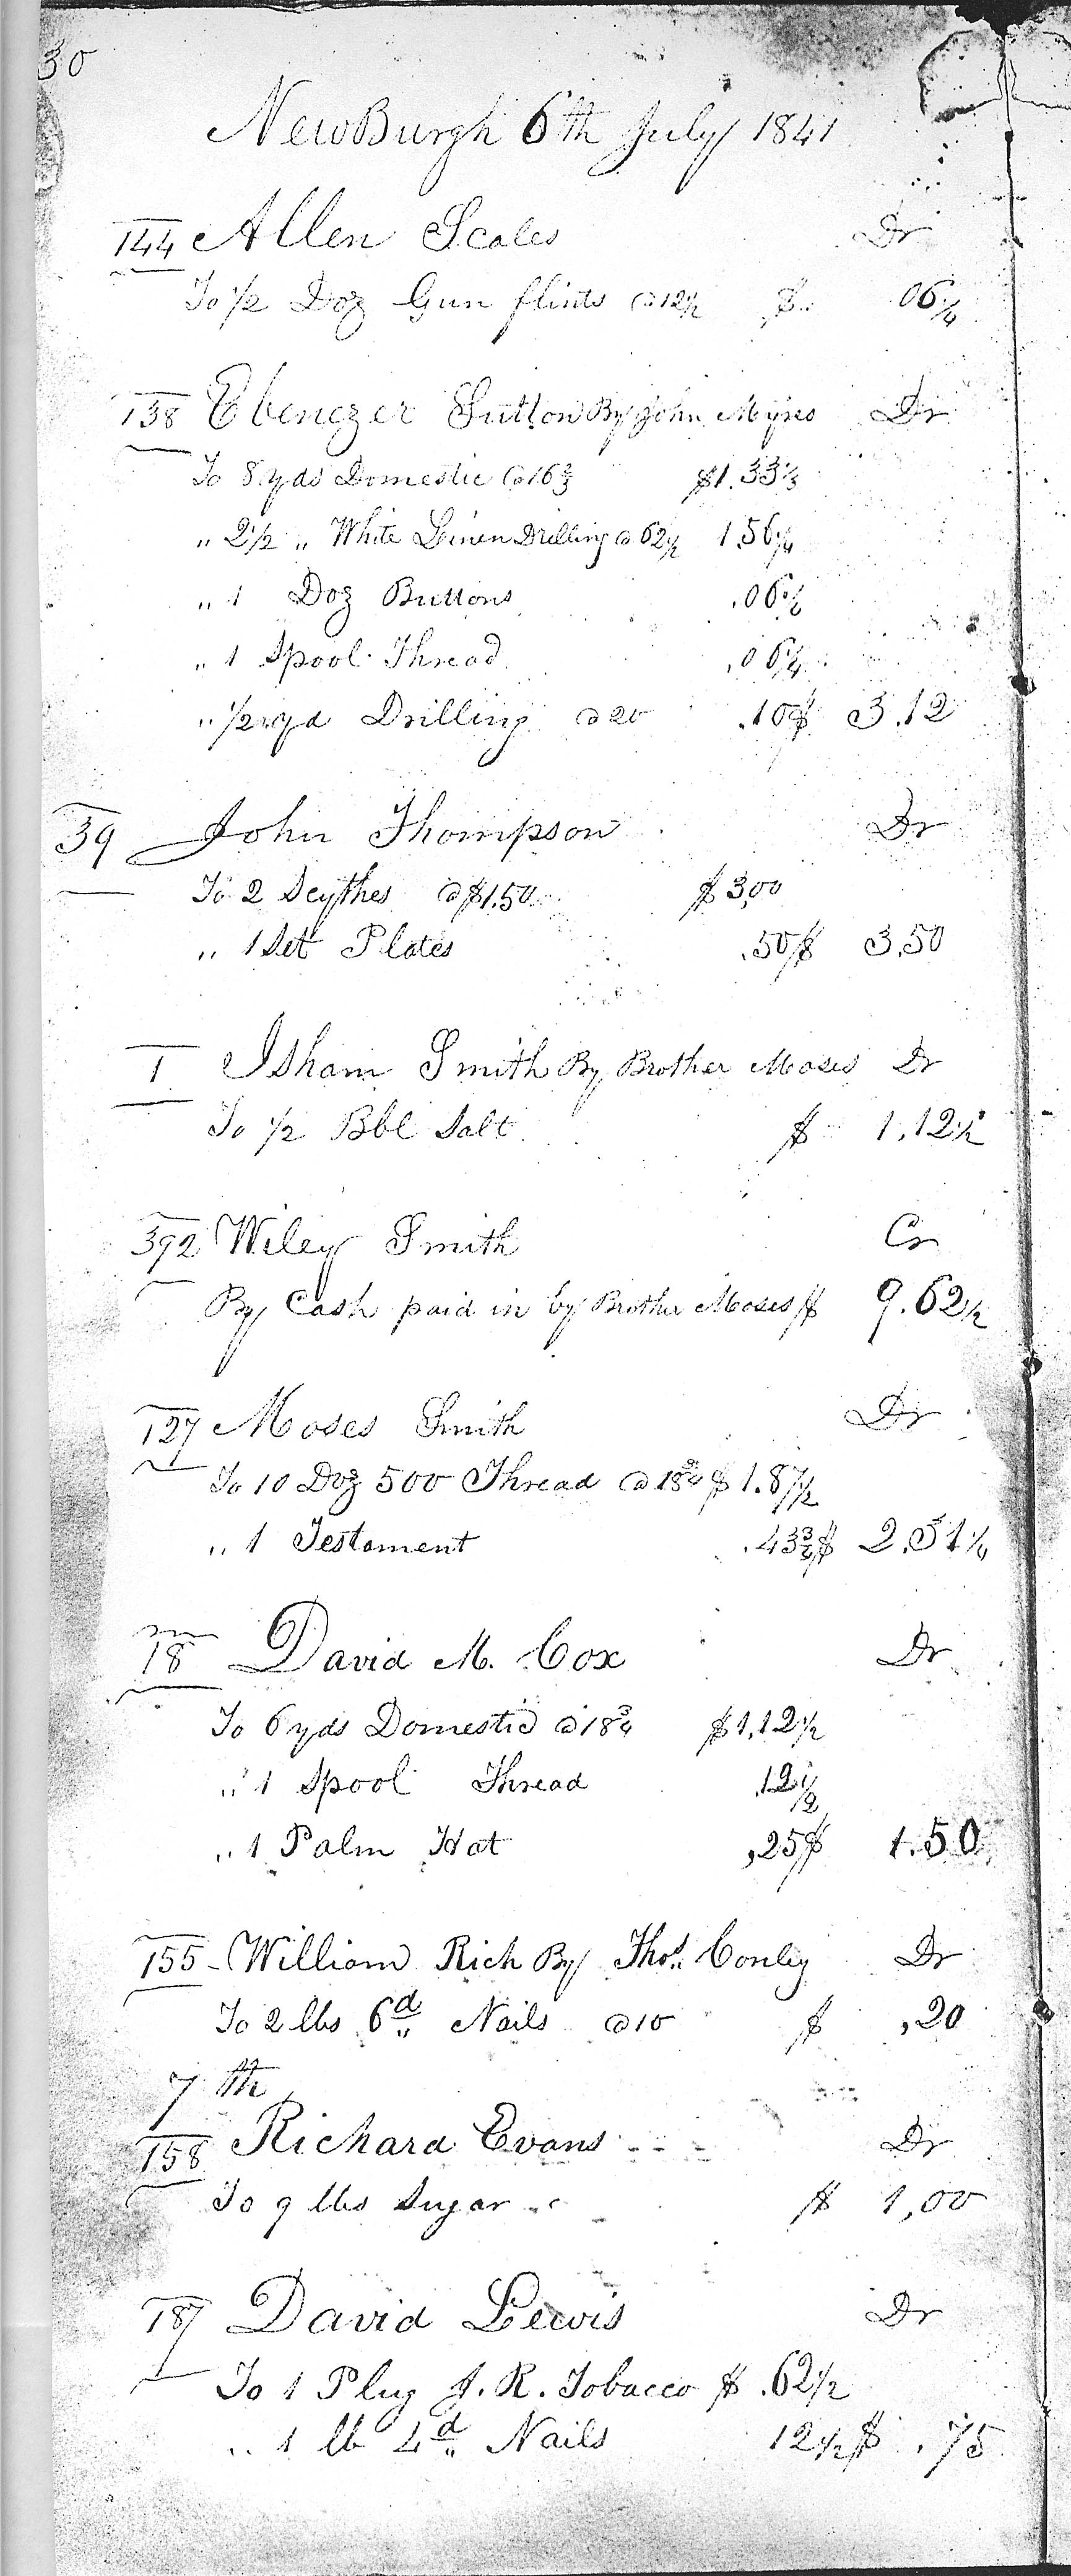 30
NewBurgh 6th July 1841
144 Allen Scales Dr
To 1/2 Doz Gun flints @ 12 1/2 $ 06 1/4
138 Ebenezer Sutton By John Myres Dr
To 8 yds Domestic @ 16 2/3 $1.33 1/3
" 2 1/2 " White Leinen Drilling @ 62 1/2 1.56 1/4
" 1 Doz Buttons .06 1/4
" 1 Spool Thread .06 1/4
" 1/2 yd Drilling @ 20 .10 $ 3.12
39 John Thompson Dr
To 2 Scythes @ $1.50 $ 3,00
" 1 Set Plates .50 $ 3.50
1 Isham Smith By Brother Moses Dr
To 1/2 Bbl Salt $ 1.12 1/2
392 Wiley Smith Cr
By Cash paid in by Brother Moses $ 9.62 1/2
127 Moses Smith Dr
To 10 Doz 500 Thread @ 18 3/4 $ 1.87 1/2
" 1 Testament .43 3/4 $ 2.31 1/4
18 David M. Cox Dr
To 6 yds Domestic @ 18 3/4 $1,12 1/2
" 1 Spool Thread .12 1/2
" 1 Palm Hat ,25 $ 1.50
155 William Rich By Thos. Conley Dr
To 2 lbs 6d Nails @ 10 $ ,20
7th
158 Richard Evans Dr
To 9 lbs Sugar $ 1,00
187 David Lewis Dr
To 1 Plug J. R. Tobacco $ .62 1/2
" 1 lb 4d Nails 12 1/2 $ .75